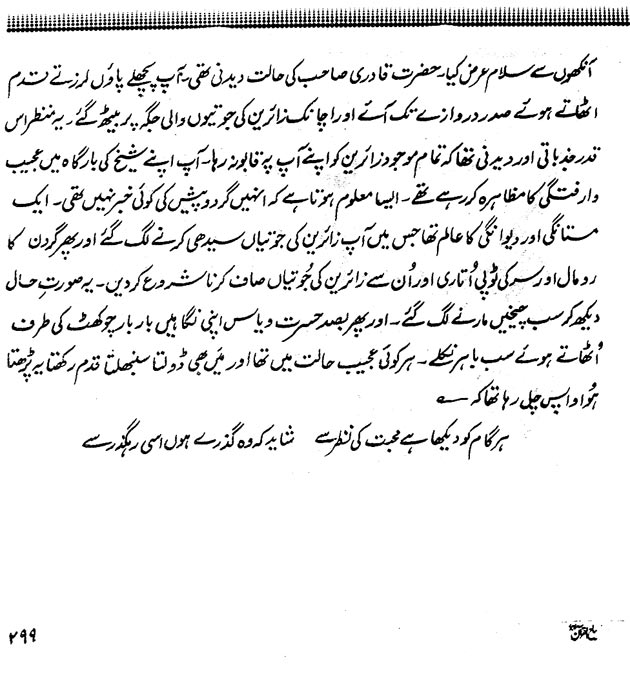 آنکھوں سے سلام عرض کیا۔ حضرت قادری صاحب کی حالت دیدنی تھی۔ آپ پچھلے پاؤں لرزتے قدم
اٹھاتے ہوئے صدر دروازے تک آئے اور اچانک زائرین کی جوتیوں والی جگہ پر بیٹھ گئے۔ یہ منظر اس
قدر جذباتی اور دیدنی تھا کہ تمام موجود زائرین کو اپنے آپ پر قابو نہ رہا۔ آپ اپنے شیخ کی بارگاہ میں عجیب
وارفتگی کا مظاہرہ کر رہے تھے۔ ایسا معلوم ہوتا ہے کہ انہیں گردوپیش کی کوئی خبر نہیں تھی۔ ایک
مستانگی اور دیوانگی کا عالم تھا جس میں آپ زائرین کی جوتیاں سیدھی کرنے لگ گئے اور پھر گردن کا
رومال اور سر کی ٹوپی اُتاری اور اُن سے زائرین کی جُوتیاں صاف کرنا شروع کر دیں۔ یہ صورتِ حال
دیکھ کر سب چیخیں مارنے لگ گئے۔ اور پھر بصد حسرت و یاس اپنی نگاہیں بار بار چوکھٹ کی طرف
اُٹھاتے ہوئے سب باہر نکلے۔ ہر کوئی عجیب حالت میں تھا اور میں بھی ڈولتا سنبھلتا قدم رکھتا یہ پڑھتا
ہُوا واپس چل رہا تھا کہ ؎
ہر گام کو دیکھا ہے محبت کی نظر سے شاید کہ وہ گذرے ہوں اسی رہگذر سے
۲۹۹